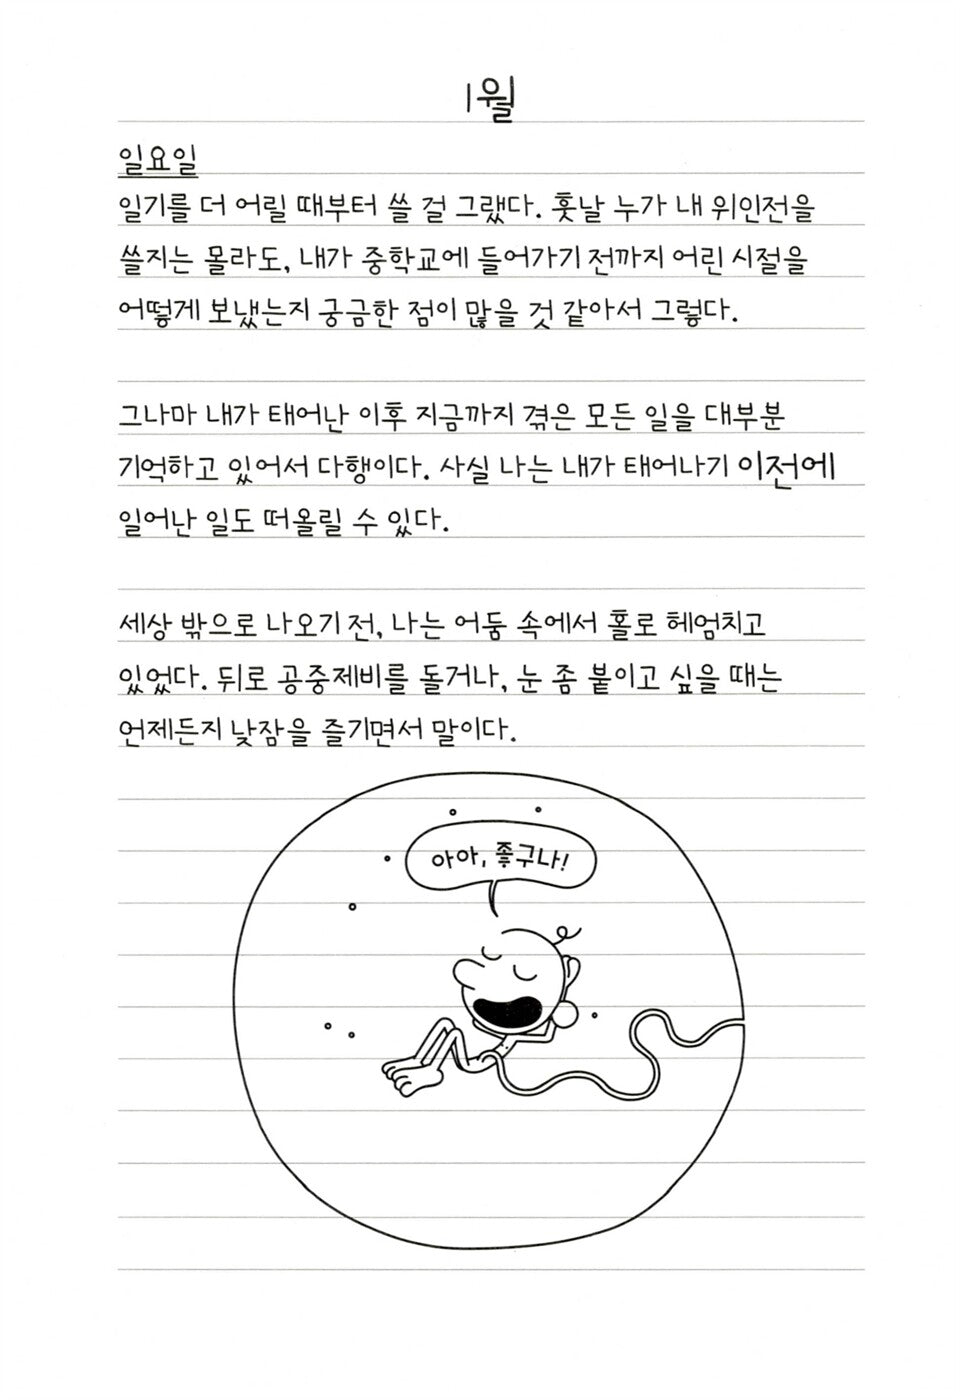 1월
일요일
일기를 더 어릴 때부터 쓸 걸 그랬다. 훗날 누가 내 위인전을
쓸지는 몰라도, 내가 중학교에 들어가기 전까지 어린 시절을
어떻게 보냈는지 궁금한 점이 많을 것 같아서 그렇다.
그나마 내가 태어난 이후 지금까지 겪은 모든 일을 대부분
기억하고 있어서 다행이다. 사실 나는 내가 태어나기 이전에
일어난 일도 떠올릴 수 있다.
세상 밖으로 나오기 전, 나는 어둠 속에서 홀로 헤엄치고
있었다. 뒤로 공중제비를 돌거나, 눈 좀 붙이고 싶을 때는
언제든지 낮잠을 즐기면서 말이다.
아아, 좋구나!